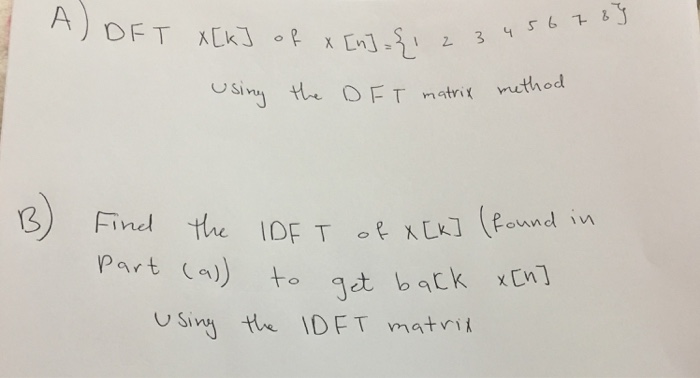 A) DFT X[k] of x[n]={1 2 3 4 5 6 7 8}
using the DFT matrix method
B) Find the IDFT of X[k] (found in
Part (a)) to get back x[n]
Using the IDFT matrix